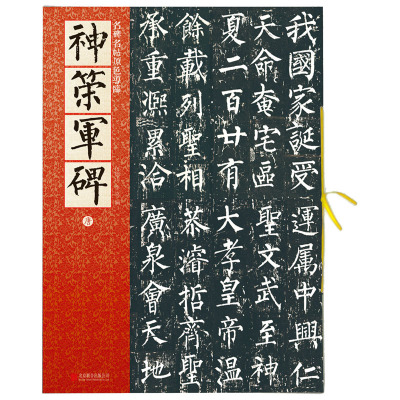 名碑名帖原色導臨
神策軍碑
唐
我國家誕受運属中興仁
天命奄宅區聖文武至神
夏二百廿有大孝皇帝溫
餘載列聖相恭濬哲齊聖
承重熙累洽廣泉會天地